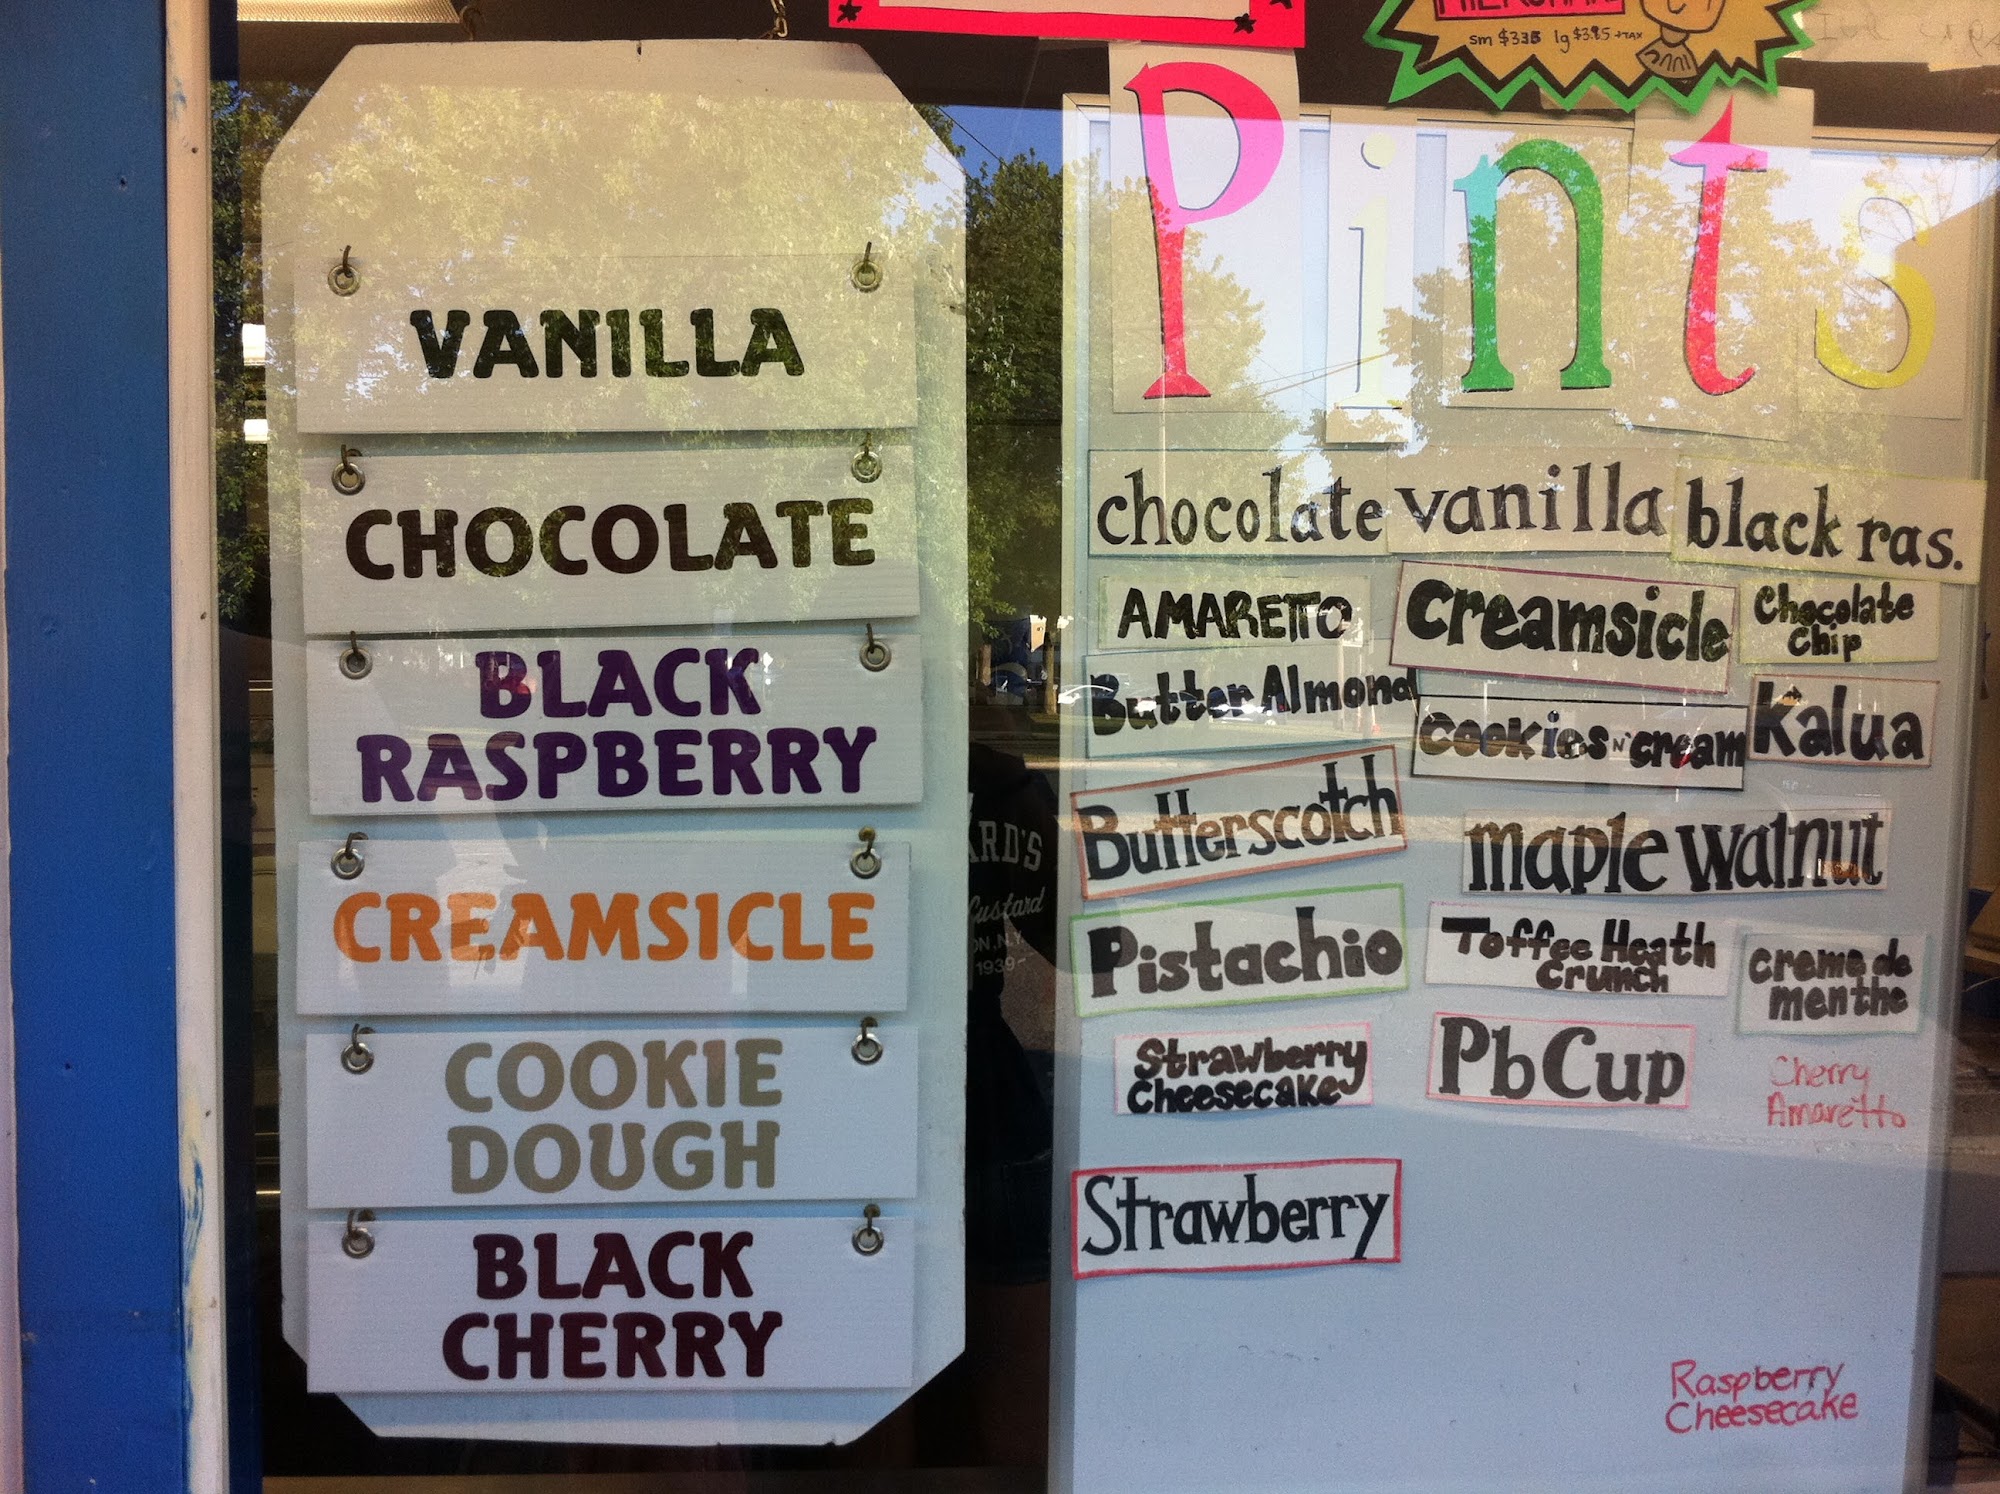 sm $335 lg $3.85 +TAX
VANILLA
CHOCOLATE
BLACK
RASPBERRY
CREAMSICLE
COOKIE
DOUGH
BLACK
CHERRY
ARD'S
Custard
ON, N.Y.
1939
Pints
chocolate vanilla black ras.
AMARETTO Creamsicle
Chocolate
Chip
Butter Almond cookies N' cream Kalua
Butterscotch maple walnut
Pistachio
Toffee Heath
Crunch
creme de
menthe
Strawberry
Cheesecake
PbCup
Cherry
Amaretto
Strawberry
Raspberry
Cheesecake